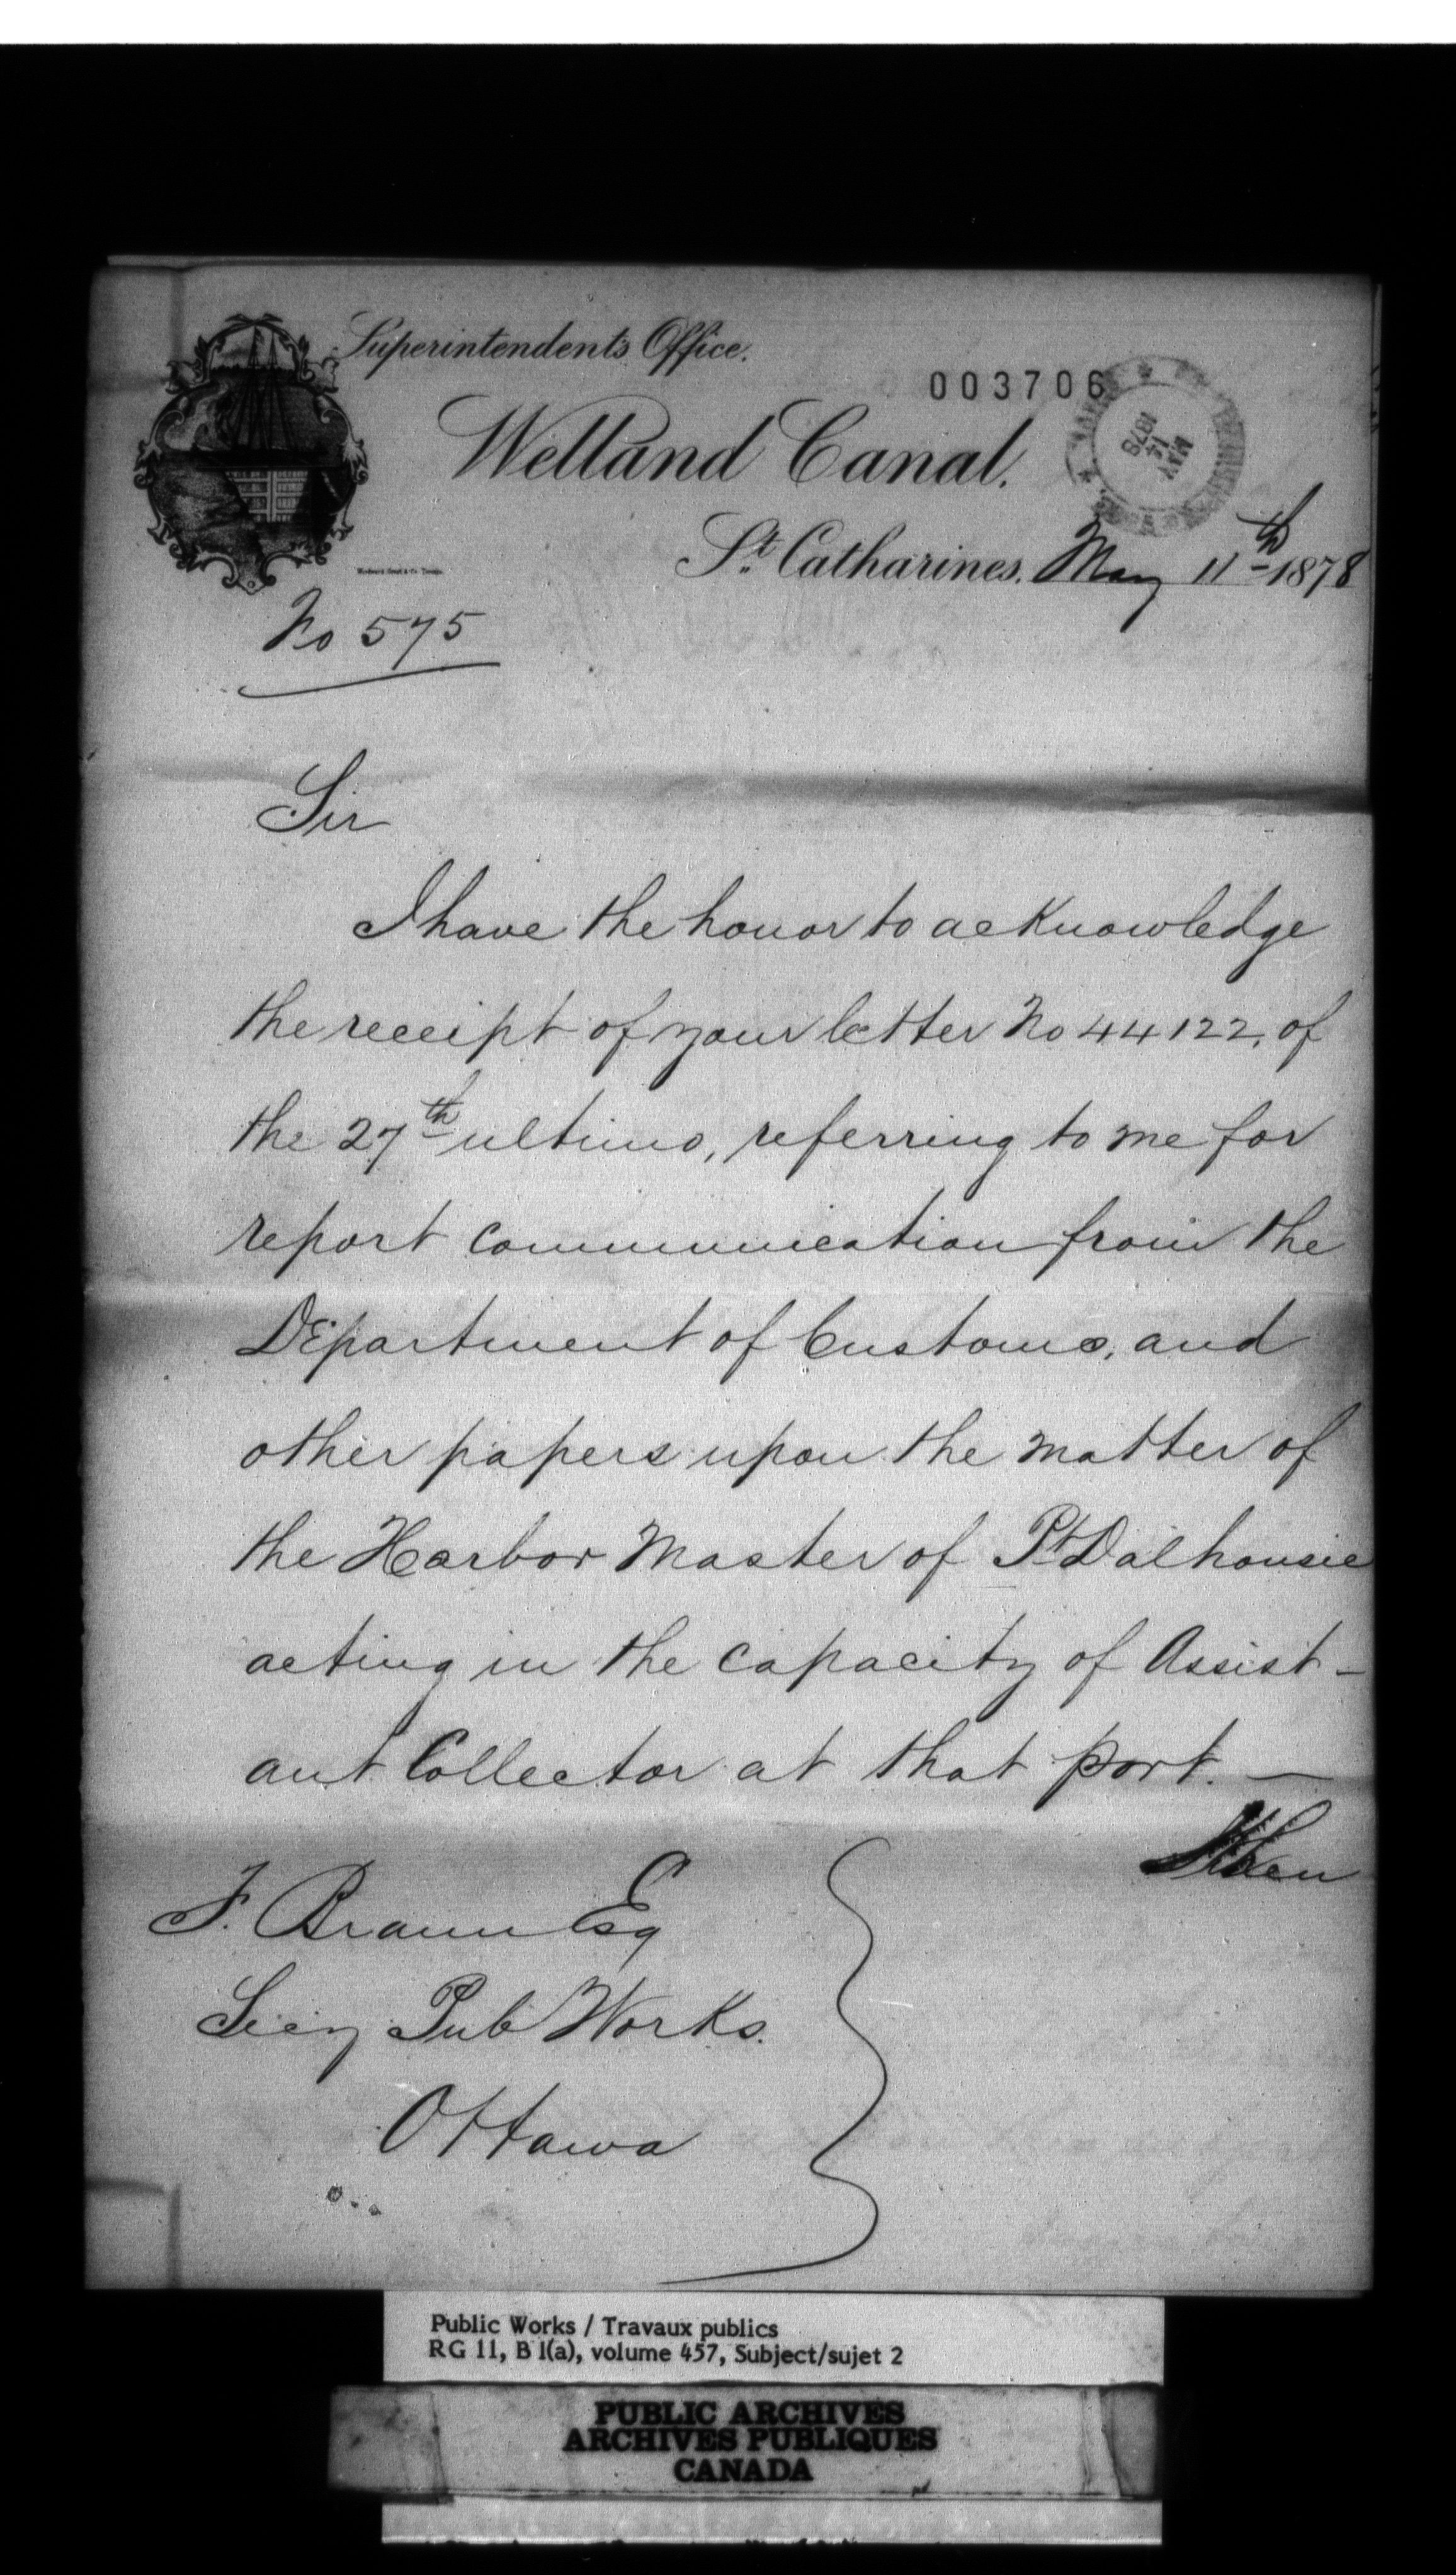 Superintendent's Office.
003706
Welland Canal.
MAY
14
1878
St. Catharines, May 11th 1878
No 575
Sir
I have the honor to acknowledge
the receipt of your letter No 44122, of
the 27th ultimo, referring to me for
report communication from the
Department of Customs, and
other papers upon the matter of
the Harbor Master of Pt Dalhousie
acting in the capacity of Assist-
ant Collector at that port. —
When
F. Braun Esq
Secy Pub Works.
Ottawa
Public Works / Travaux publics
RG 11, B 1(a), volume 457, Subject/sujet 2
PUBLIC ARCHIVES
ARCHIVES PUBLIQUES
CANADA